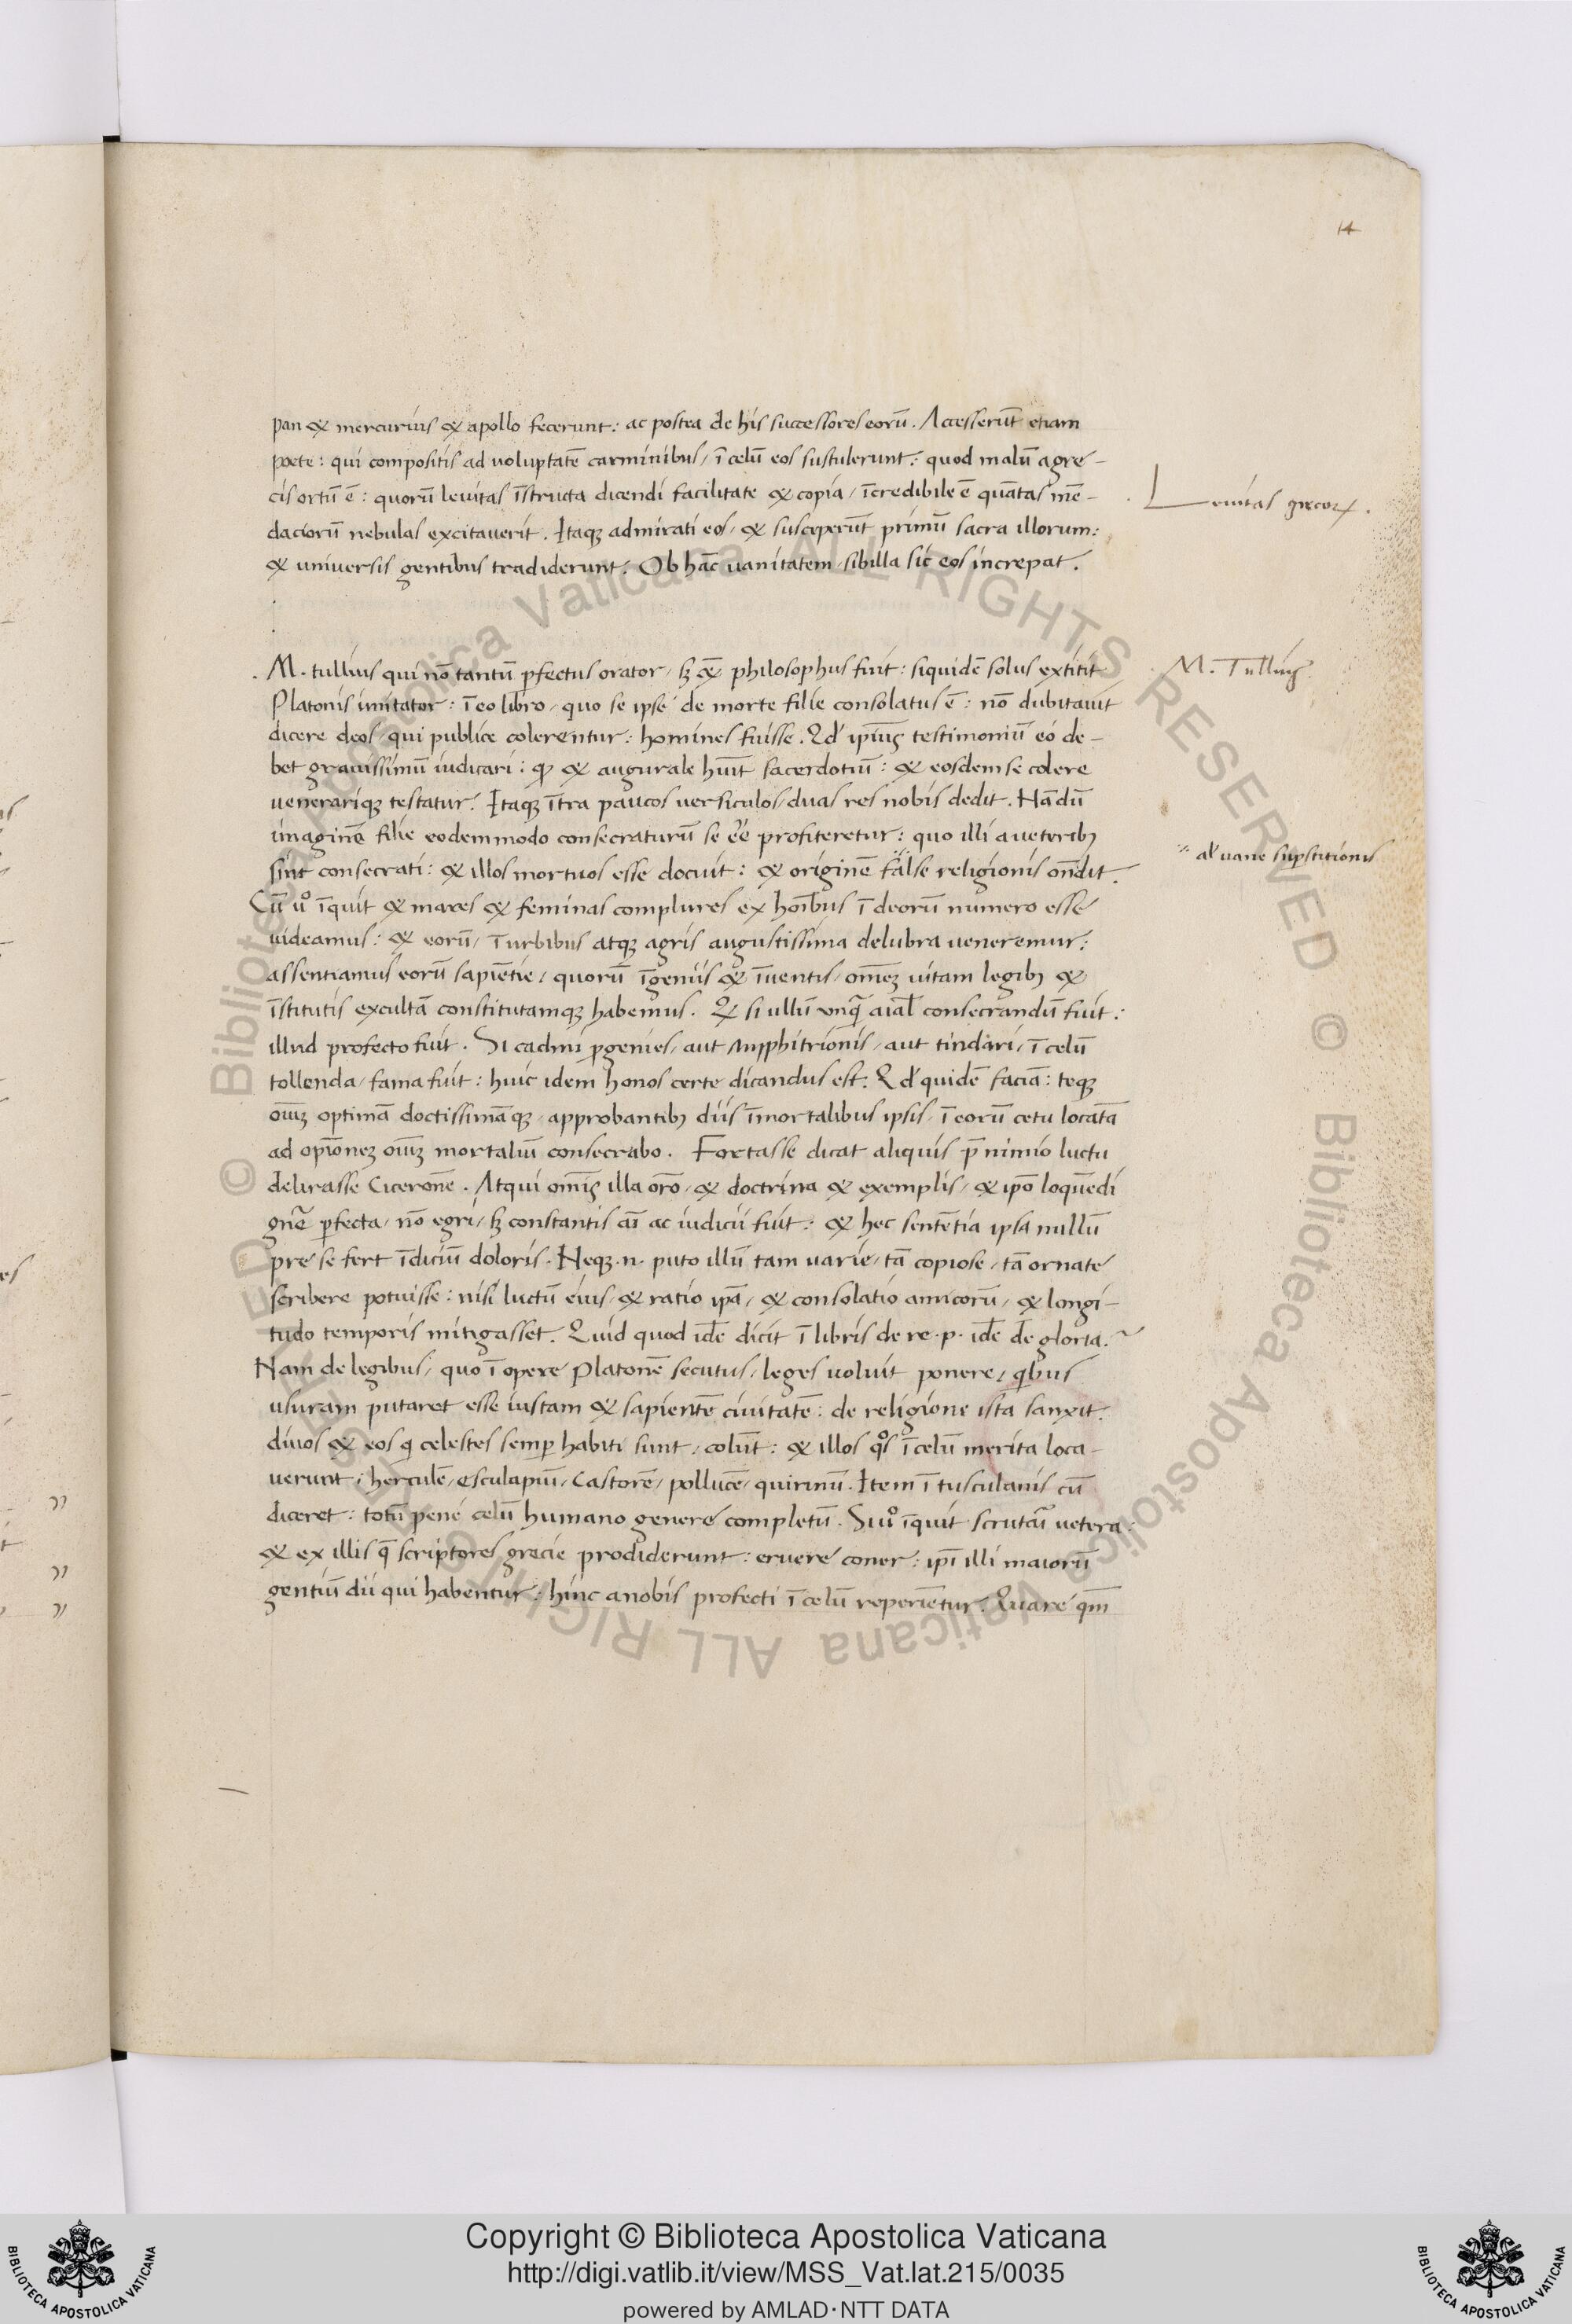 14
pan & mercurius & apollo fecerunt: ac postea de his successores eorū. Accesserūt etiam
poete: qui compositis ad uoluptatē carminibus, ī celū eos sustulerunt: quod malū a gre-
cis ortū ē: quorū leuitas īstructa dicendi facilitate & copia, īcredibile ē quātas mē-
Leuitas grecoꝝ.
daciorū nebulas excitauerit. Itaqꝫ admirati eos, & susceperūt primū sacra illorum:
& universis gentibus tradiderunt. Ob hāc uanitatem, sibilla sic eos increpat.
M. tullius qui nō tantū ꝑfectus orator, sꝫ & philosophus fuit: siquidē solus extitit
M. Tulliuꝯ
Platonis imitator: ī eo libro, quo se ipse de morte filie consolatus ē: nō dubitauit
dicere deos, qui publice colerentur: homines fuisse. Qd' ipiūꝯ testimoniū eo de-
bet grauissimū iudicari: ꝙ & augurale huīt sacerdotiū: & eosdem se colere
uenerariqꝫ testatur. Itaqꝫ ītra paucos uersiculos, duas res nobis dedit. Nā dū
imaginē filie eodem modo consecraturū se eē profiteretur: quo illi a ueteribꝫ
sint consecrati: & illos mortuos esse docuit: & originē false religionis oñdit.
al' uane suꝑstitionis
Cū uº īquit & mares & feminas complures ex hoībus ī deorū numero esse
uideamus: & eorū, ī urbibus atqꝫ agris augustissima delubra ueneremur:
assentiamus eorū sapiētie, quorū īgeniis & īuentis, omēꝫ uitam legibꝫ &
īstitutis excultā constitutamqꝫ habemus. Qꝫ si ullū unqᵃ aīal consecrandū fuit:
illud profecto fuit. Si cadmi ꝓgenies, aut Amphitrionis, aut tindari, ī celū
tollenda, fama fuit: huic idem honos certe dicandus est. Qd' quidē faciā: teqꝫ
oīuꝫ optimā doctissimāqꝫ, approbantibꝫ diis īmortalibus ipsis, ī eorū cetu locatā
ad opīoneꝫ oīuꝫ mortaliū consecrabo. Fortasse dicat aliquis p̄ nimio luctu
delirasse Ciceronē. Atqui omīꝯ illa orō, & doctrina & exemplis, & ipō loquēdi
gñe ꝑfecta, nō egri, sꝫ constantis aī ac iudicii fuit: & hec sentētia ipsa nullū
pre se fert īdiciū doloris. Neqꝫ .n. puto illū tam uarie, tā copiose, tā ornate
scribere potuisse: nisi luctū eius, & ratio ipā, & consolatio amicorū, & longi-
tudo temporis mitigasset. Quid quod idē dicit ī libris de re .p. idē de gloria.
Nam de legibus, quo ī opere Platonē secutus, leges uoluit ponere, qibus
usuram putaret esse iustam & sapientē ciuitatē: de religione ista sanxit.
divos & eos q celestes semꝑ habiti sunt, colūt: & illos qºs ī celū merita loca-
verunt, herculē, esculapiū, Castorē, pollucē, quirinū. Item ī tusculanis cū
diceret: totū pene celū humano genere completū. Si uº īquit scrutari uetera:
& ex illis q̄ scriptores grecie prodiderunt: eruere coner: ipī illi maiorū
gentiū dii qui habentur: hinc a nobis profecti ī celū reperiētur. Quare qm̄
© Biblioteca Apostolica Vaticana ALL RIGHTS RESERVED © Biblioteca Apostolica Vaticana ALL RIGHTS RESERVED
BIBLIOTECA APOSTOLICA VATICANA
Copyright © Biblioteca Apostolica Vaticana
http://digi.vatlib.it/view/MSS_Vat.lat.215/0035
powered by AMLAD·NTT DATA
BIBLIOTECA APOSTOLICA VATICANA